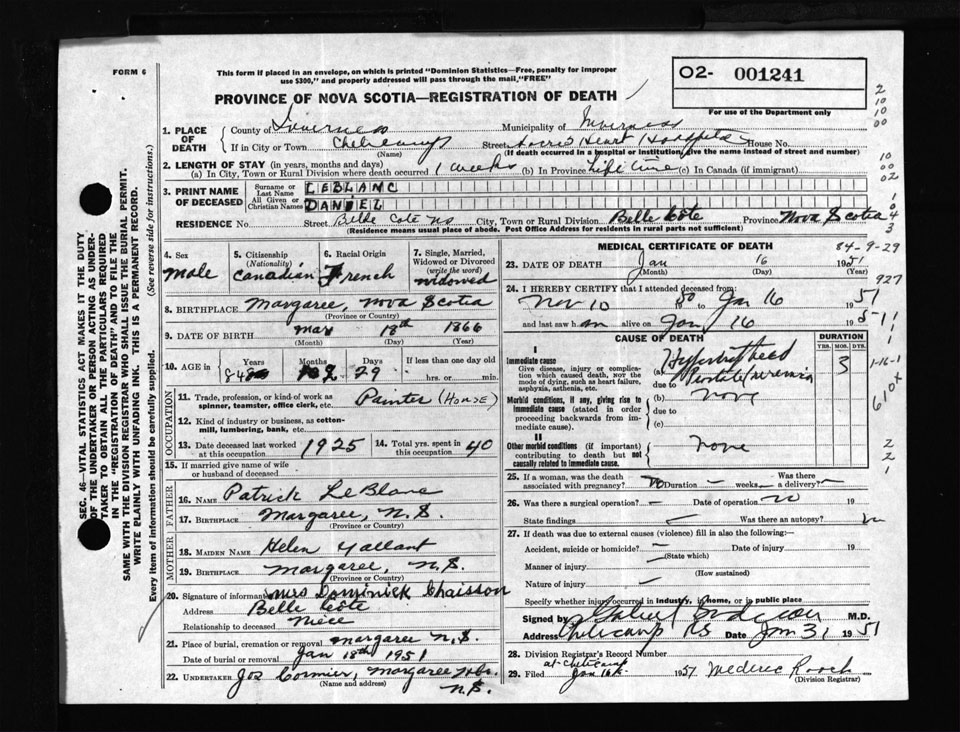 FORM 6
This form if placed in an envelope, on which is printed "Dominion Statistics—Free, penalty for improper
use $300," and properly addressed will pass through the mail, "FREE"
PROVINCE OF NOVA SCOTIA—REGISTRATION OF DEATH
O2- 001241
For use of the Department only
2
10
10
00
1. PLACE OF DEATH County of Inverness Municipality of Inverness
If in City or Town Cheticamp Street Sacred Heart Hospital House No.
(Name) (If death occurred in a hospital or institution, give the name instead of street and number)
2. LENGTH OF STAY (in years, months and days)
(a) In City, Town or Rural Division where death occurred 1 week (b) In Province Life time (c) In Canada (if immigrant)
10
00
02
3. PRINT NAME OF DECEASED
Surname or Last Name LEBLANC
All Given or Christian Names DANIEL
1
0
4
3
RESIDENCE No. Street Belle Cote NS City, Town or Rural Division Belle Côte Province Nova Scotia
(Residence means usual place of abode. Post Office Address for residents in rural parts not sufficient)
4. Sex male
5. Citizenship (Nationality) Canadian
6. Racial Origin French
7. Single, Married, Widowed or Divorced (write the word) widowed
8. BIRTHPLACE Margaree, Nova Scotia
(Province or Country)
9. DATE OF BIRTH 18th 1866
(Month) (Day) (Year)
10. AGE in Years 84 Months Days 29 If less than one day old
hrs. or min.
OCCUPATION
11. Trade, profession, or kind of work as spinner, teamster, office clerk, etc. Painter (House)
12. Kind of industry or business, as cotten-mill, lumbering, bank, etc.
13. Date deceased last worked at this occupation 1925
14. Total yrs. spent in this occupation 40
15. If married give name of wife or husband of deceased
FATHER
16. NAME Patrick LeBlanc
17. BIRTHPLACE Margaree, N.S.
(Province or Country)
MOTHER
18. MAIDEN NAME Helen Gallant
19. BIRTHPLACE Margaree, N.S.
(Province or Country)
20. Signature of informant Mrs Dominick Chaisson
Address Belle Côte
Relationship to deceased niece
21. Place of burial, cremation or removal Margaree N.S.
Date of burial or removal Jan 18th 1951
22. UNDERTAKER Jos Cormier, Margaree
N.S.
(Name and address)
MEDICAL CERTIFICATE OF DEATH
84-9-29
23. DATE OF DEATH Jan 16 1951
(Month) (Day) (Year)
927
24. I HEREBY CERTIFY that I attended deceased from:
Nov 10 50 to Jan 16 1951
and last saw h im alive on Jan 16 1951
CAUSE OF DEATH
DURATION
YRS. MOS. DYS.
I
Immediate cause
Give disease, injury or complication which caused death, not the mode of dying, such as heart failure, asphyxia, asthenia, etc.
(a) Hypertrophied
due to Prostate/uremia
3
1-16-1
Morbid conditions, if any, giving rise to immediate cause (stated in order proceeding backwards from immediate cause).
(b) none
due to
(c)
II
Other morbid conditions (if important) contributing to death but not causally related to immediate cause.
none
2
2
1
25. If a woman, was the death associated with pregnancy? no Duration weeks Was there a delivery?
26. Was there a surgical operation Date of operation no 19
State findings Was there an autopsy? no
27. If death was due to external causes (violence) fill in also the following:
Accident, suicide or homicide? Date of injury 19
(State which)
Manner of injury
(How sustained)
Nature of injury
Specify whether injury occurred in industry, in home, or in public place
Signed by M.D.
Address Cheticamp NS Date Jan 31 1951
28. Division Registrar's Record Number
at Cheticamp
29. Filed Jan 1951 Mederic Roach
(Division Registrar)
SEC. 46—VITAL STATISTICS ACT MAKES IT THE DUTY
OF THE UNDERTAKER OR PERSON ACTING AS UNDER-
TAKER TO OBTAIN ALL THE PARTICULARS REQUIRED
IN THE "REGISTRATION OF DEATH" AND TO FILE THE
SAME WITH THE DIVISION REGISTRAR WHO SHALL ISSUE THE BURIAL PERMIT.
WRITE PLAINLY WITH UNFADING INK. THIS IS A PERMANENT RECORD.
Every item of information should be carefully supplied. (See reverse side for instructions.)